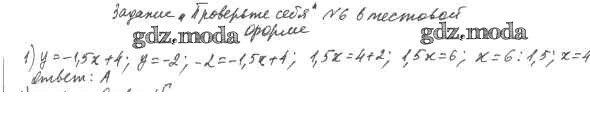 Задание „Проверьте себя“ №6 в тестовой
форме
gdz.moda gdz.moda
1) y = -1,5x+4; y = -2; -2 = -1,5x+4; 1,5x = 4+2; 1,5x = 6; x = 6 : 1,5; x = 4
Ответ: А